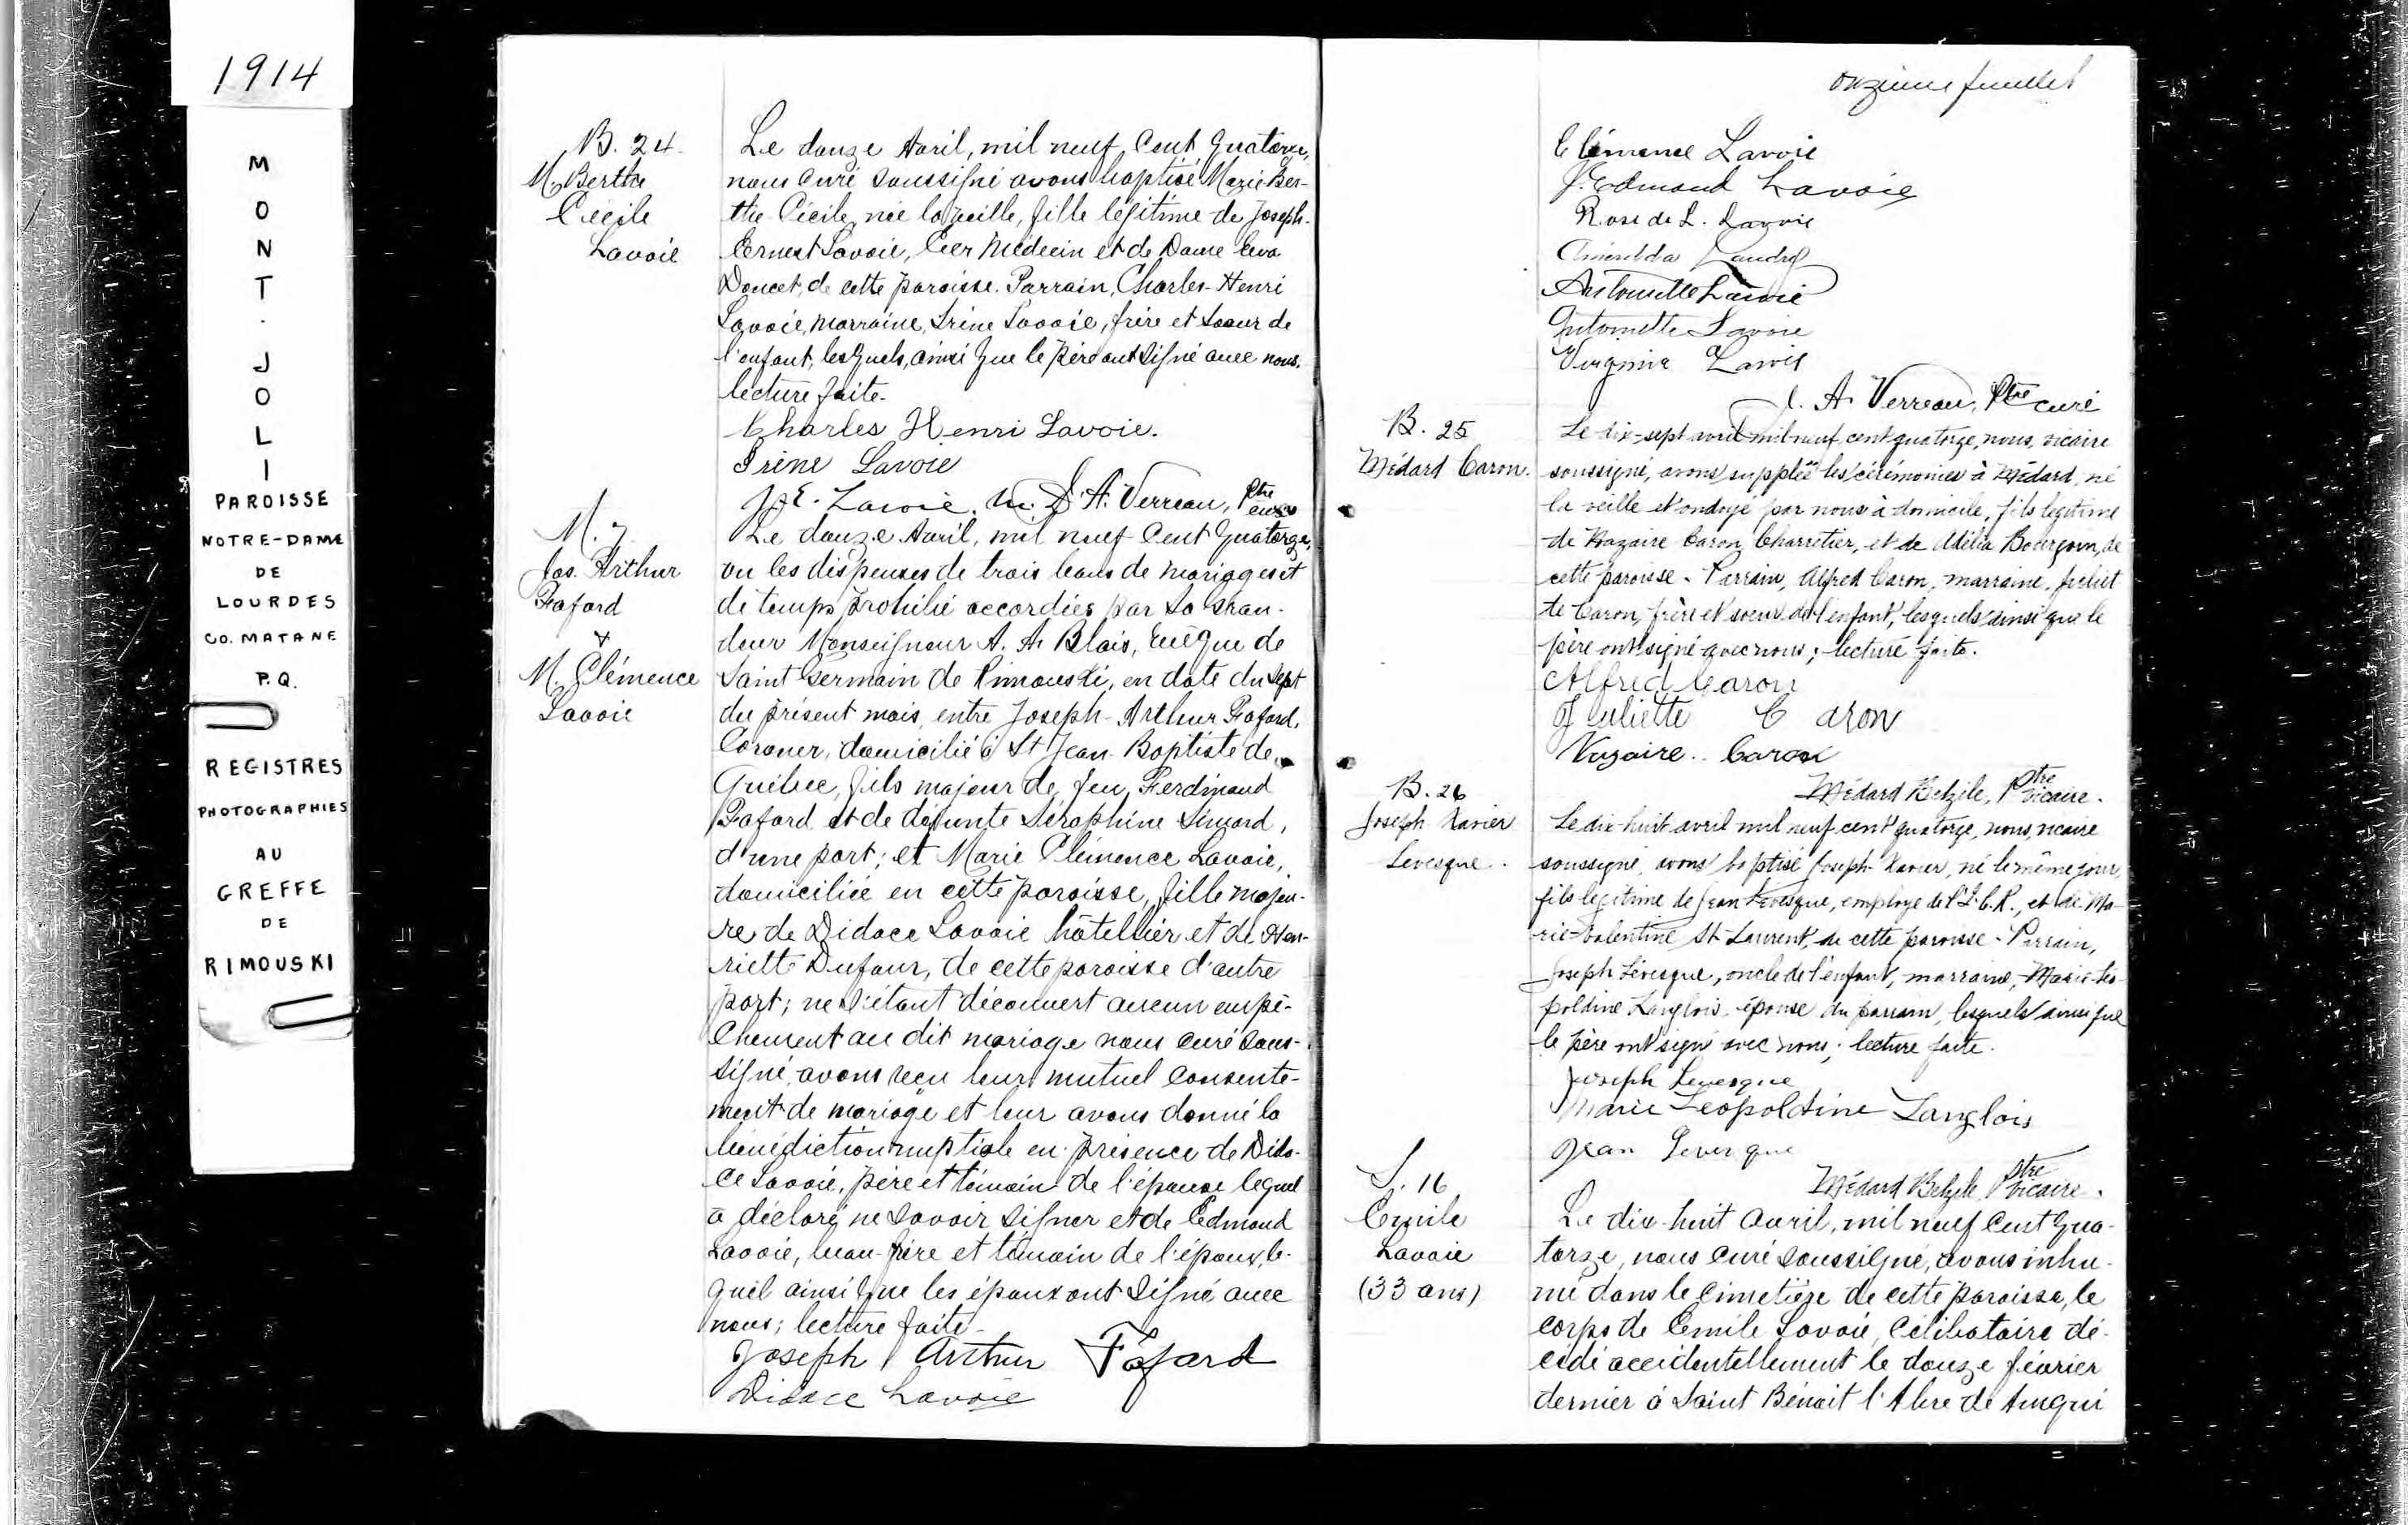 1914
MONT-JOLI
PAROISSE
NOTRE-DAME
DE
LOURDES
CO. MATANE
P.Q.
REGISTRES
PHOTOGRAPHIES
AU
GREFFE
DE
RIMOUSKI
B. 24
M. Berthe
Cécile
Lavoie
Le douze Avril, mil neuf Cent Quatorze,
nous Curé soussigné avons baptisé Marie Ber-
the Cécile, née la veille, fille légitime de Joseph-
Ernest Lavoie, Ecr Médecin et de Dame Eva
Doucet, de cette paroisse. Parrain, Charles-Henri
Lavoie, marraine, Irène Lavoie, frère et soeur de
l'enfant, lesquels, ainsi que le père ont signé avec nous.
lecture faite.
Charles Henri Lavoie.
Irène Lavoie
J. E. Lavoie. M.D. A. Verreau, Ptre curé
M. 7
Jos. Arthur
Fafard
&
M. Clémence
Lavoie
Le douze Avril, mil neuf Cent Quatorze,
vu les dispenses de trois bans de mariages et
de temps prohibé accordées par Sa Gran-
deur Monseigneur A. A. Blais, Evêque de
Saint Germain de Rimouski, en date du sept
du présent mois, entre Joseph-Arthur Fafard,
Coroner, domicilié à St Jean-Baptiste de
Québec, fils majeur de feu Ferdinand
Fafard et de défunte Séraphine Simard,
d'une part; et Marie Clémence Lavoie,
domiciliée en cette paroisse, fille majeu-
re de Didace Lavoie hôtellier et de Hen-
riette Dufour, de cette paroisse d'autre
part; ne s'étant découvert aucun empê-
chement au dit mariage nous curé sous-
signé, avons reçu leur mutuel consente-
ment de mariage et leur avons donné la
bénédiction nuptiale en présence de Dida-
ce Lavoie, père et témoin de l'épouse lequel
a déclaré ne savoir signer et de Edmond
Lavoie, beau-frère et témoin de l'époux, le-
quel ainsi que les époux ont signé avec
nous; lecture faite.
Joseph Arthur Fafard
Didace Lavoie
onzième feuillet
Clémence Lavoie
J. Edmond Lavoie
Rose de L. Lavoie
Landry
Antoinette Lavoie
Antoinette Lavoie
Virginie Lavoie
J. A. Verreau, Ptre curé
B. 25
Médard Caron.
Le dix-sept avril mil neuf cent quatorze, nous, vicaire
soussigné, avons suppléé les cérémonies à Médard, né
la veille et ondoyé par nous à domicile, fils légitime
de Nazaire Caron, Charretier, et de Adélia Bourgoin, de
cette paroisse. Parrain, Alfred Caron, marraine, Juliet
te Caron, frère et soeur de l'enfant, lesquels ainsi que le
père ont signé avec nous; lecture faite.
Alfred Caron
Juliette Caron
Nazaire Caron
Médard Belzile, Ptre vicaire.
B. 26
Joseph Xavier
Levesque.
Le dix-huit avril mil neuf cent quatorze, nous, vicaire
soussigné, avons baptisé Joseph-Xavier, né le même jour,
fils légitime de Jean Levesque, employé de l'I.C.R., et de Ma-
rie-Valentine St-Laurent, de cette paroisse. Parrain,
Joseph Lévesque, oncle de l'enfant, marraine, Marie-Léo-
poldine Langlois, épouse du parrain, lesquels ainsi que
le père ont signé avec nous; lecture faite.
Joseph Levesque
Marie Leopoldine Langlois
Jean Levesque
Médard Belzile, Ptre vicaire.
S. 16
Emile
Lavoie
(33 ans)
Le dix-huit Avril, mil neuf Cent Qua-
torze, nous curé soussigné, avons inhu-
mé dans le Cimetière de cette paroisse, le
corps de Emile Lavoie, Célibataire dé-
cédé accidentellement le douze février
dernier à Saint Bénoit l'Abre de Amqui